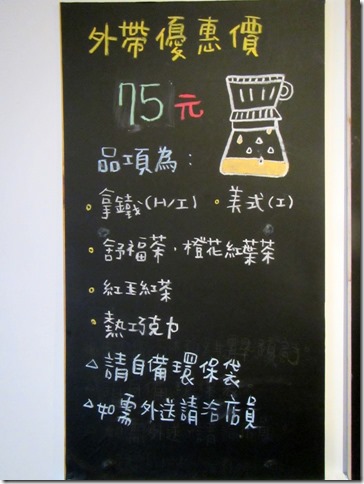 外帶優惠價
75元
品項為:
拿鐵(H/I) 美式(I)
舒福茶.橙花紅葉茶
紅玉紅茶
熱巧克力
△請自備環保袋
△如需外送請洽店員